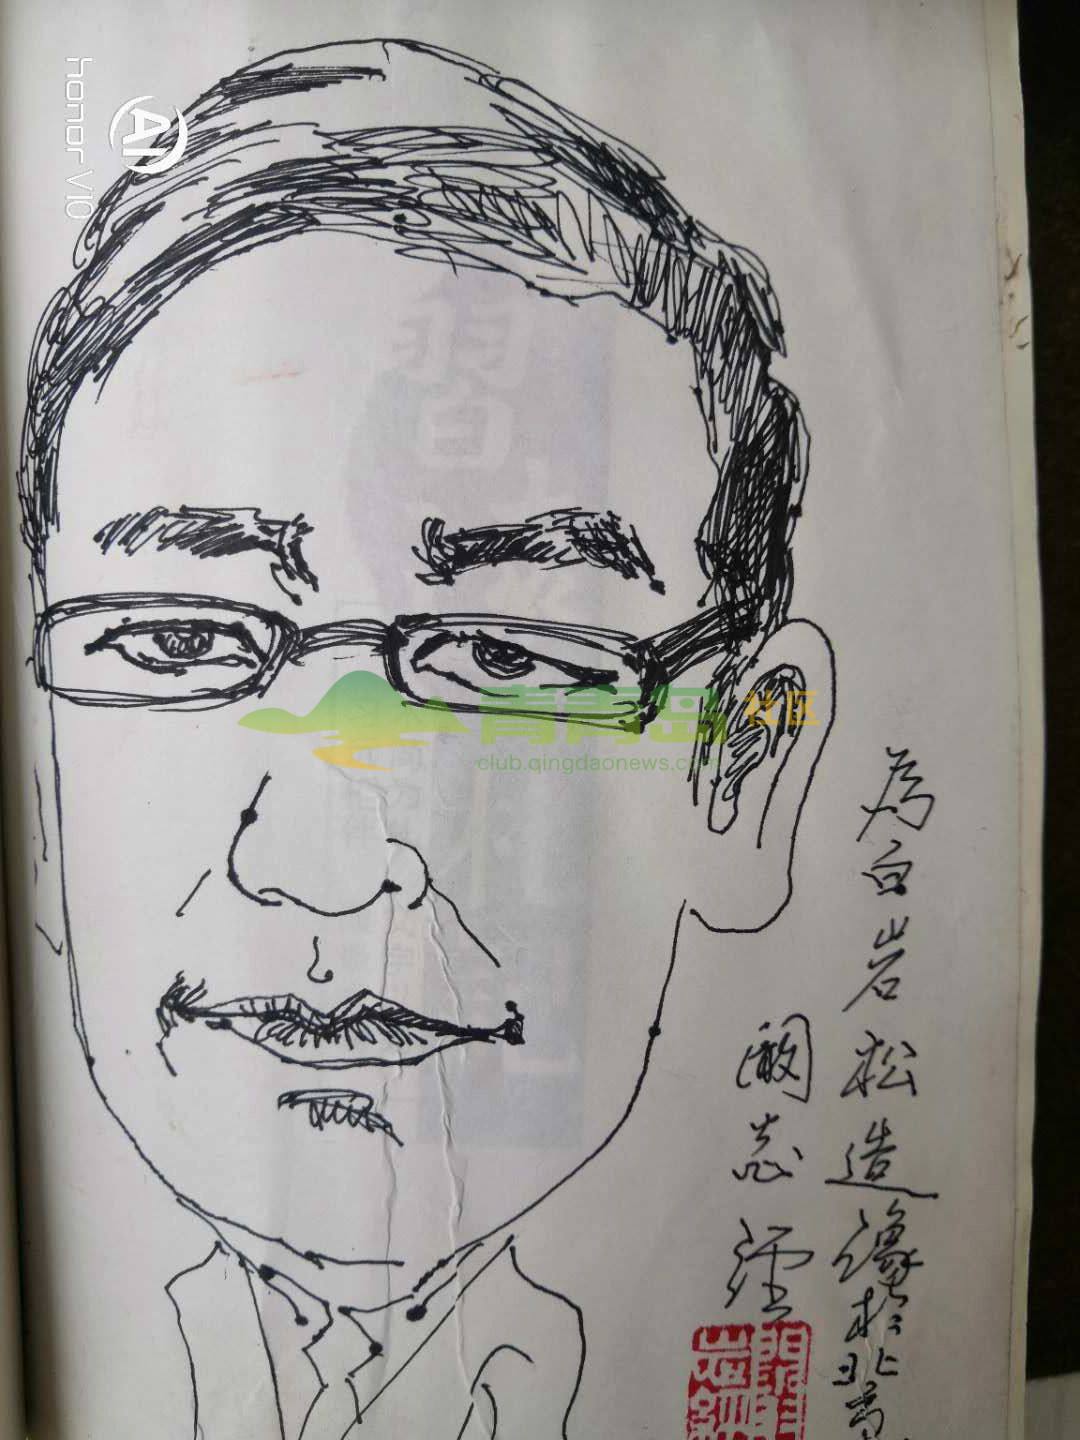 honor V10
AI
青青岛社区
club.qingdaonews.com
為白岩松造像於北京
阚志